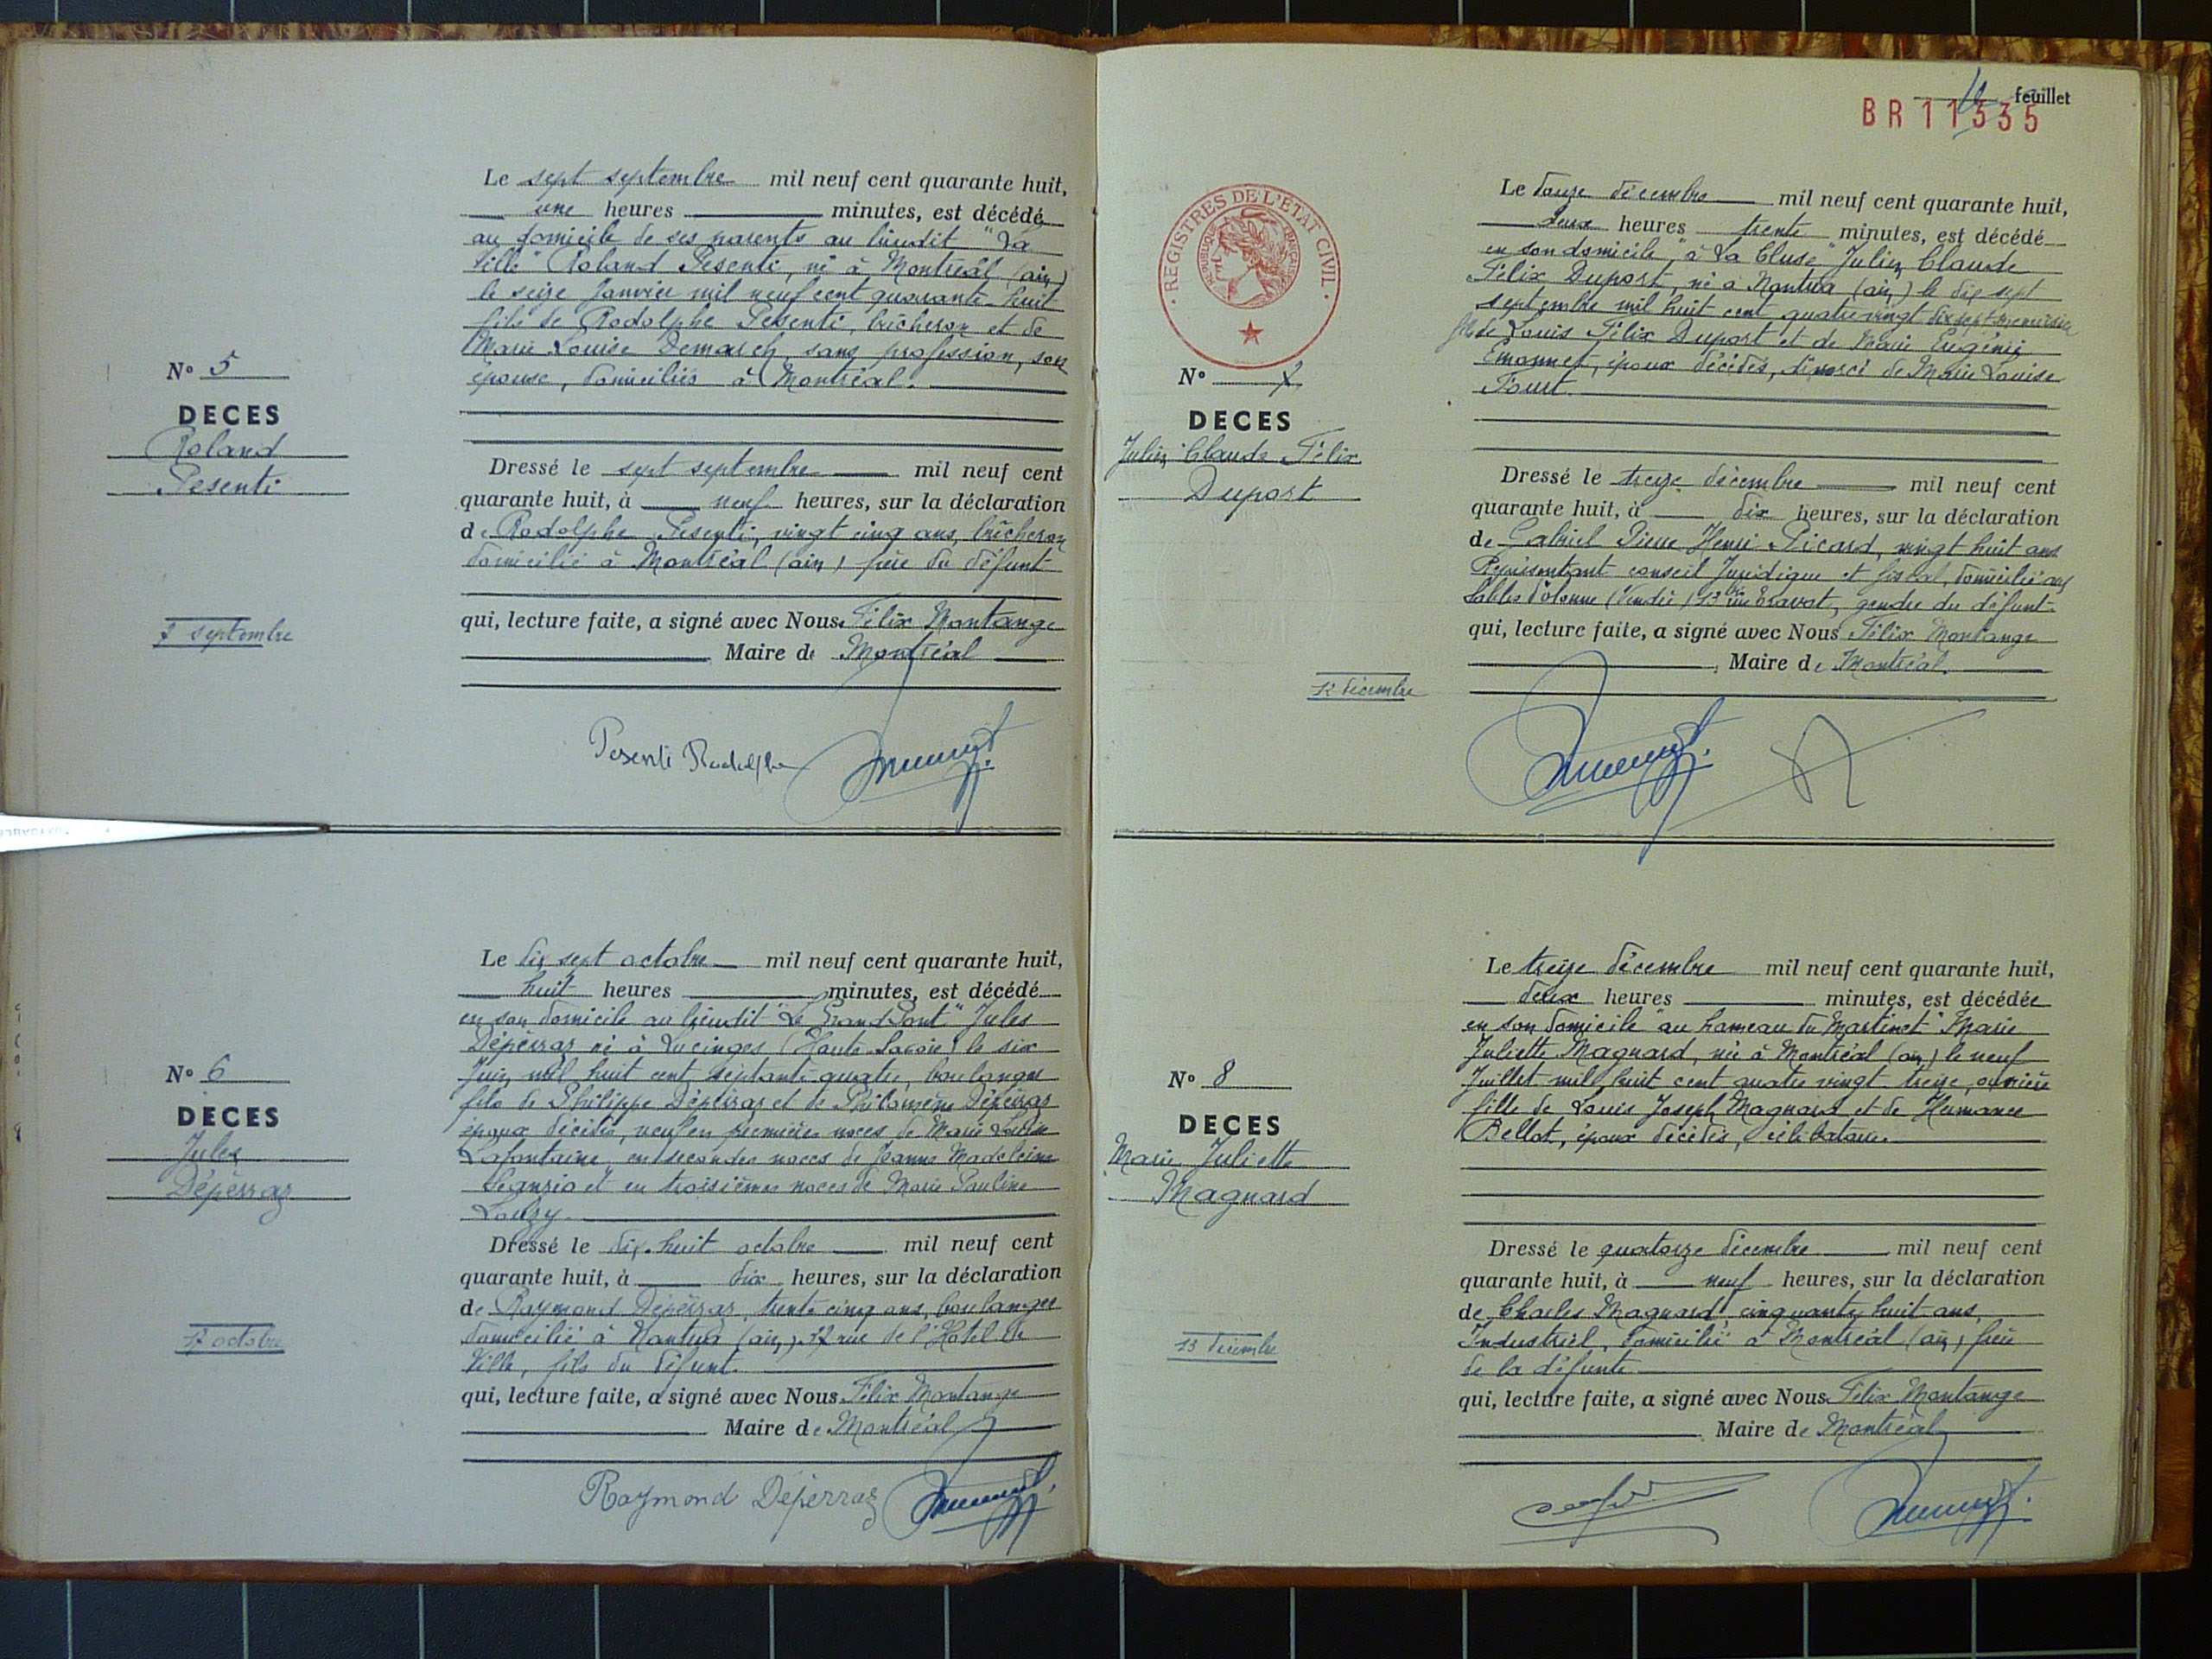 Le sept septembre mil neuf cent quarante huit,
une heures minutes, est décédé
au domicile de ses parents au lieudit "La
Ville" Roland Pesenti, né à Montréal (ain)
le seize Janvier mil neuf cent quarante-huit
fils de Rodolphe Pesenti, bûcheron et de
Marie Louise Demarch, sans profession, son
épouse, domiciliés à Montréal.
N° 5
DECES
Roland
Pesenti
7 septembre
Dressé le sept septembre mil neuf cent
quarante huit, à neuf heures, sur la déclaration
de Rodolphe Pesenti, vingt cinq ans, bûcheron
domicilié à Montréal (ain) père du défunt
qui, lecture faite, a signé avec Nous Félix Montange
Maire de Montréal
Pesenti Rodolphe
Le dix sept octobre mil neuf cent quarante huit,
huit heures minutes, est décédé
en son domicile au lieudit "Le Grand Pont" Jules
Dépérraz né à Lucinges (Haute-Savoie) le six
Juin mil huit cent soixante quatre, boulanger
fils de Philippe Dépérraz et de Philomène Dépérraz
époux décédés, veuf en premières noces de Marie Louise
Lafontaine, en secondes noces de Jeanne Madeleine
et en troisièmes noces de Marie Pauline
Louzy.
N° 6
DECES
Jules
Dépérraz
17 octobre
Dressé le dix-huit octobre mil neuf cent
quarante huit, à dix heures, sur la déclaration
de Raymond Dépérraz, trente cinq ans, boulanger
domicilié à Nantua (ain), 17 rue de l'Hôtel de
Ville, fils du défunt.
qui, lecture faite, a signé avec Nous Félix Montange
Maire de Montréal
Raymond Dépérraz
feuillet
BR11535
REGISTRES DE L'ÉTAT CIVIL
RÉPUBLIQUE FRANÇAISE
Le douze décembre mil neuf cent quarante huit,
deux heures trente minutes, est décédé
en son domicile "à La Cluse" Julien Claude
Félix Duport, né à Nantua (ain) le dix sept
septembre mil huit cent quatre vingt dix sept menuisier
fils de Louis Félix Duport et de Marie Eugénie
Emonnet, époux décédés, divorcé de Marie Louise
N° 7
DECES
Julien Claude Félix
Duport
12 décembre
Dressé le treize décembre mil neuf cent
quarante huit, à dix heures, sur la déclaration
de Gabriel Pierre Henri Picard, vingt huit ans
Représentant conseil Juridique et fiscal, domicilié aux
Sables d'Olonne (Vendée) 13 rue Travot, gendre du défunt.
qui, lecture faite, a signé avec Nous Félix Montange
Maire de Montréal.
Le treize décembre mil neuf cent quarante huit,
deux heures minutes, est décédée
en son domicile "au hameau du Martinet" Marie
Juliette Magnard, née à Montréal (ain) le neuf
Juillet mil huit cent quatre vingt treize, ouvrière
fille de Louis Joseph Magnard et de Hermance
Bellot, époux décédés, célibataire.
N° 8
DECES
Marie Juliette
Magnard
13 décembre
Dressé le quatorze décembre mil neuf cent
quarante huit, à neuf heures, sur la déclaration
de Charles Magnard, cinquante huit ans,
Industriel, domicilié à Montréal (ain) frère
de la défunte
qui, lecture faite, a signé avec Nous Félix Montange
Maire de Montréal